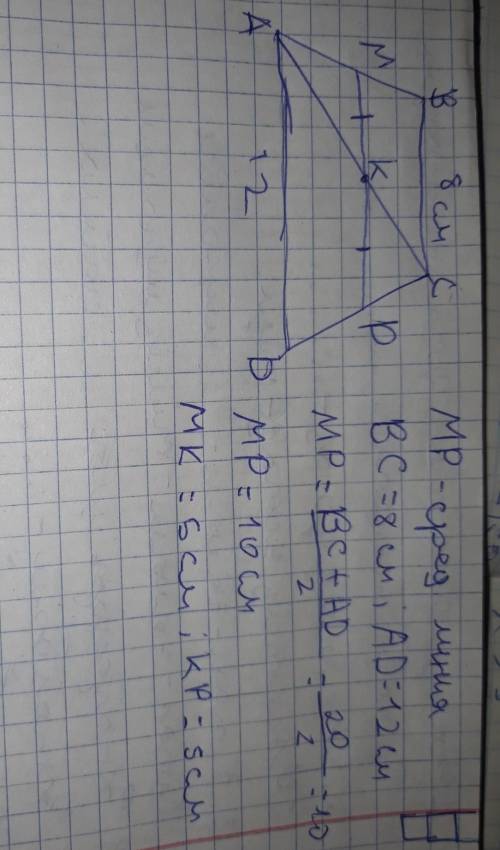 B 8 см C
M K P
A 12 D
MP - сред линия
BC = 8 см ; AD = 12 см
MP = BC + AD / 2 = 20 / 2 = 10
MP = 10 см
MK = 5 см ; KP = 5 см